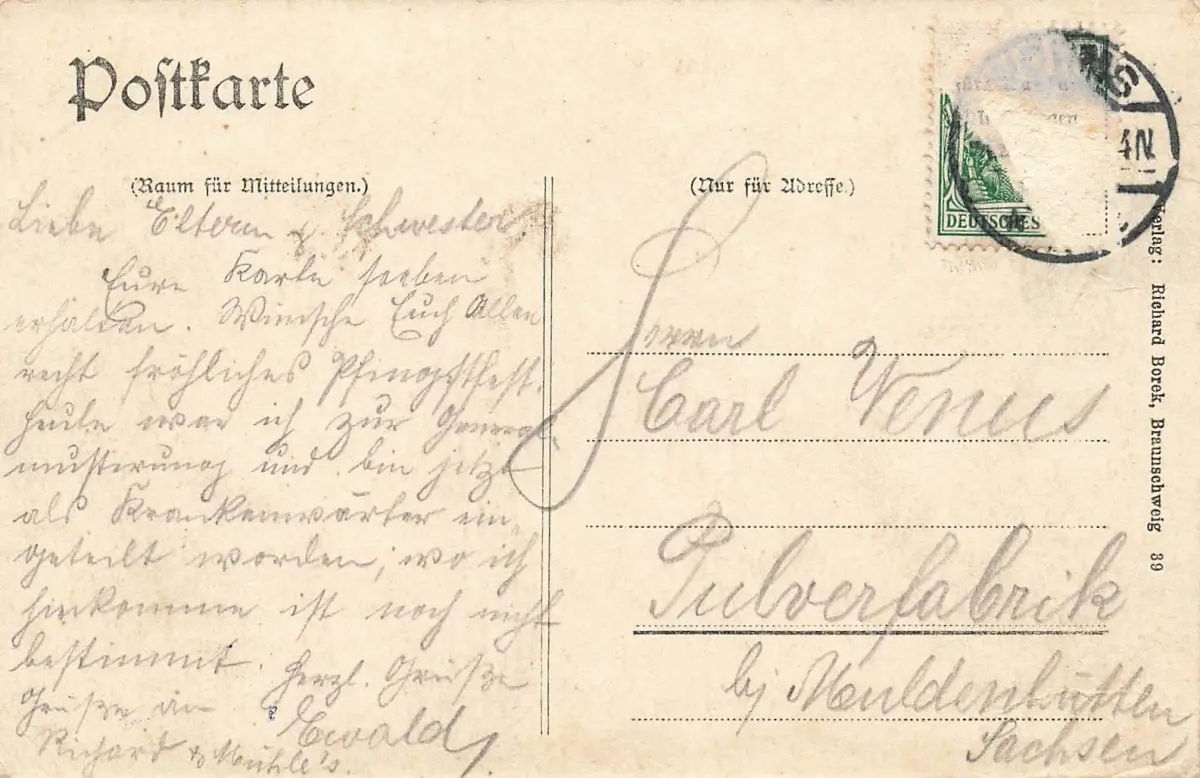 Postkarte
(Raum für Mitteilungen.)
Liebe Eltern & Schwester.
Eure Karte soeben
erhalten. Wünsche Euch Allen
recht fröhliches Pfingstfest.
Heute war ich zur General-
musterung und bin jetzt
als Krankenwärter ein-
geteilt worden, wo ich
hinkomme ist noch nicht
bestimmt. Herzl. Grüsze
Ewald
Grüsze an
Richard & Mühle's.
(Nur für Adresse.)
DEUTSCHES
Herrn
Carl Venus
Pulverfabrik
bj Muldenhütten
Sachsen
Verlag: Richard Borek, Braunschweig 39